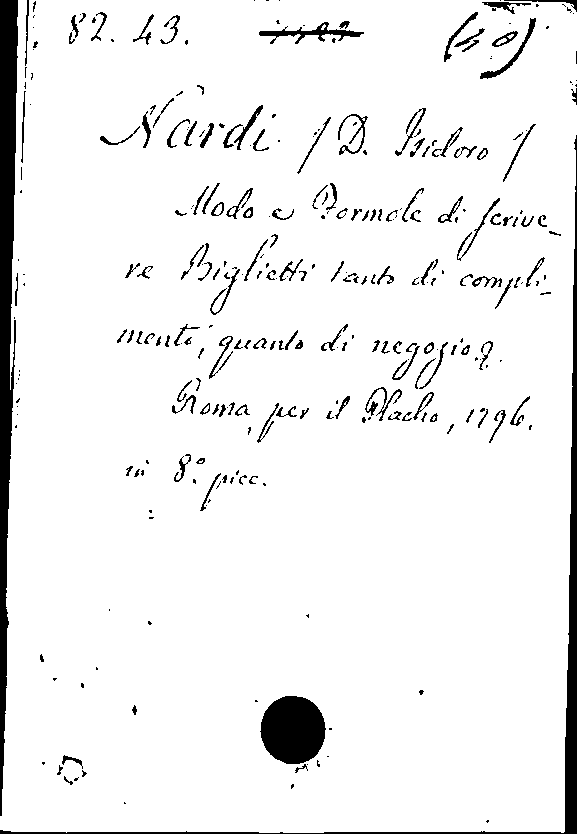 82. 43. (40)
Nardi / D. Isidoro /
Modo e Formole di scrive-
re Biglietti tanto di compli-
mento, quanto di negozio.
Roma, per il Placho, 1796.
in 8.º picc.